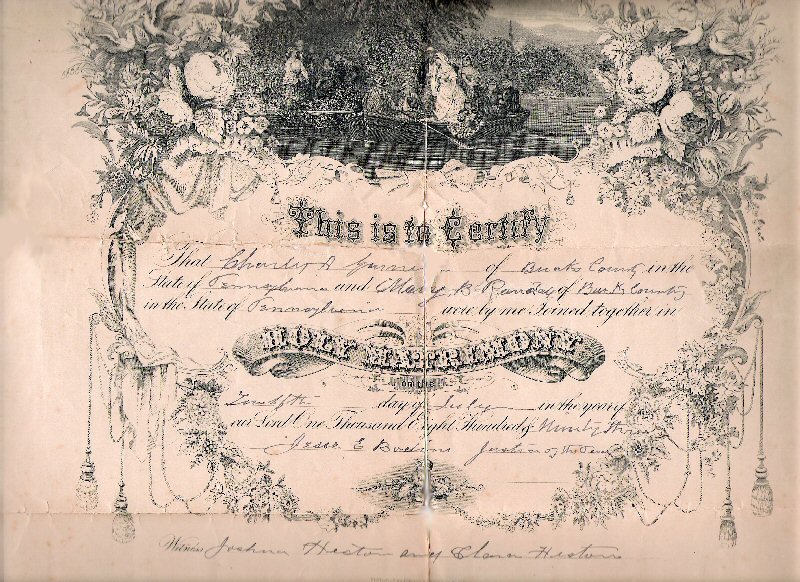 This is to Certify
That Charles of Bucks County in the
State of Pennsylvania and Mary B of Bucks County
in the State of Pennsylvania were by me Joined together in
HOLY MATRIMONY
on the
day of July in the year of
our Lord One Thousand Eight Hundred & Ninety Three
Jesse E Justice of the Peace
Witness Joshua Heston and Clara Heston